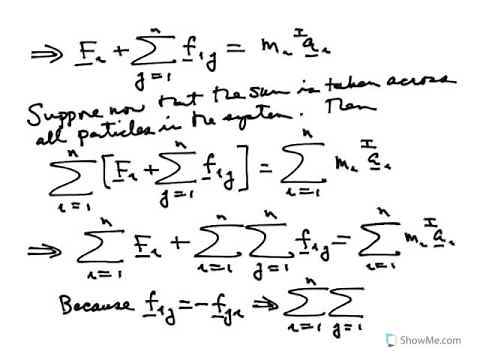 ⇒ F_i + ∑_{j=1}^{n} f_{ij} = m_i ^I a_i
Suppose now that the sum is taken across
all particles in the system. Then
∑_{i=1}^{n} [F_i + ∑_{j=1}^{n} f_{ij}] = ∑_{i=1}^{n} m_i ^I a_i
⇒ ∑_{i=1}^{n} F_i + ∑_{i=1}^{n} ∑_{j=1}^{n} f_{ij} = ∑_{i=1}^{n} m_i ^I a_i
Because f_{ij} = -f_{ji} ⇒ ∑_{i=1}^{n} ∑_{j=1}
ShowMe.com